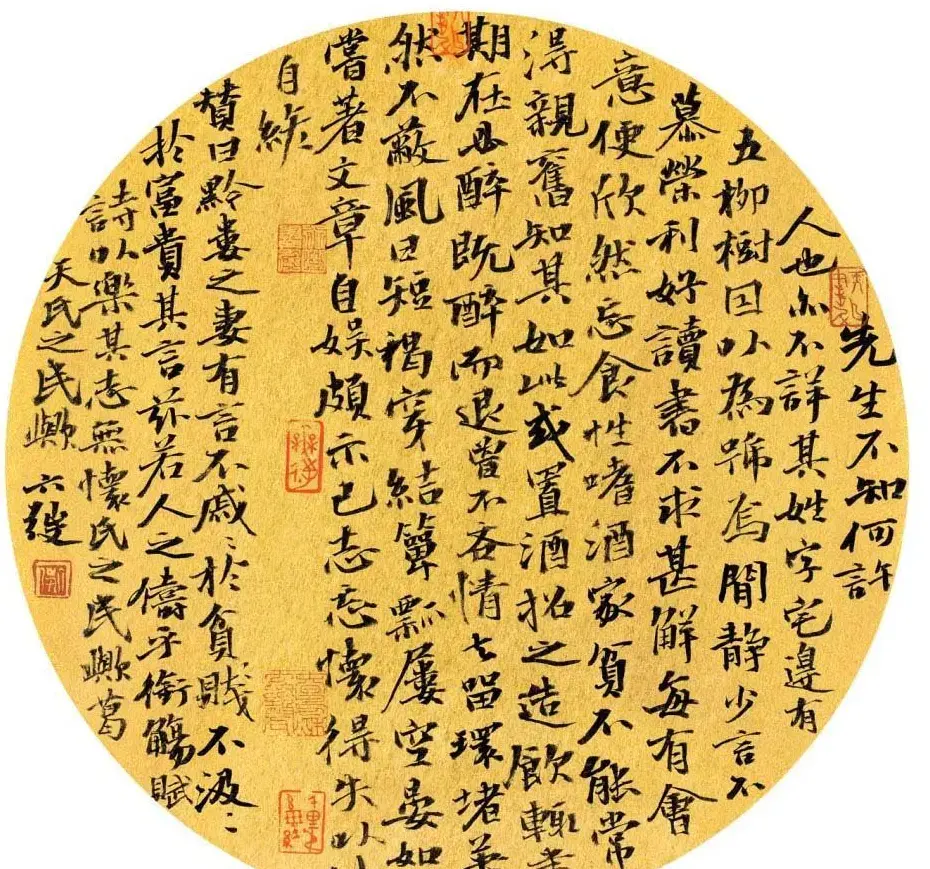 先生不知何許
人也亦不詳其姓字宅邊有
五柳樹因以為號焉閒靜少言不
慕榮利好讀書不求甚解每有會
意便欣然忘食性嗜酒家貧不能常
得親舊知其如此或置酒招之造飲輒
期在必醉既醉而退曾不吝情去留環堵蕭
然不蔽風日短褐穿結簞瓢屢空晏如
嘗著文章自娛頗示己志忘懷得失以
自終
贊曰黔婁之妻有言不戚〻於貧賤不汲〻
於富貴其言茲若人之儔乎銜觴賦
詩以樂其志無懷氏之民歟葛
天氏之民歟 六